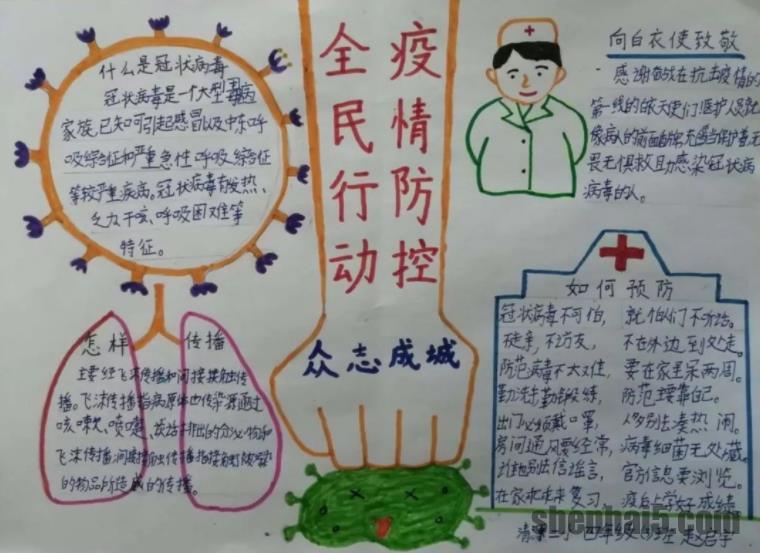 什么是冠状病毒
冠状病毒是一个大型病毒
家族,已知可引起感冒以及中东呼
吸综合征和严重急性呼吸综合征
等较严重疾病。冠状病毒有发热、
乏力干咳、呼吸困难等
特征。
怎样传播
主要经飞沫传播和间接接触传
播。飞沫传播指病原体由传染源通过
咳嗽、喷嚏、
飞沫传播,间接接触传播指接触
的物品所造成的传播。
疫情防控
全民行动
众志成城
向白衣使致敬
感谢奋战在抗击疫情的
第一线的白衣天使们医护人员就
像病人的
畏无惧救助感染冠状病
病毒的人。
如何预防
冠状病毒不可怕,就怕们不听话。
不走亲,不访友,不在外边到处走。
防范病毒不太难,要在家里呆两周。
勤洗手勤锻练,防范主要靠自己。
出门必须戴口罩,人多别去凑热闹。
房间通风要经常,病毒细菌无处藏。
别信谣言,官方信息要浏览。
在家 复习,疫后上学好成绩
四年级
shenhai5.com